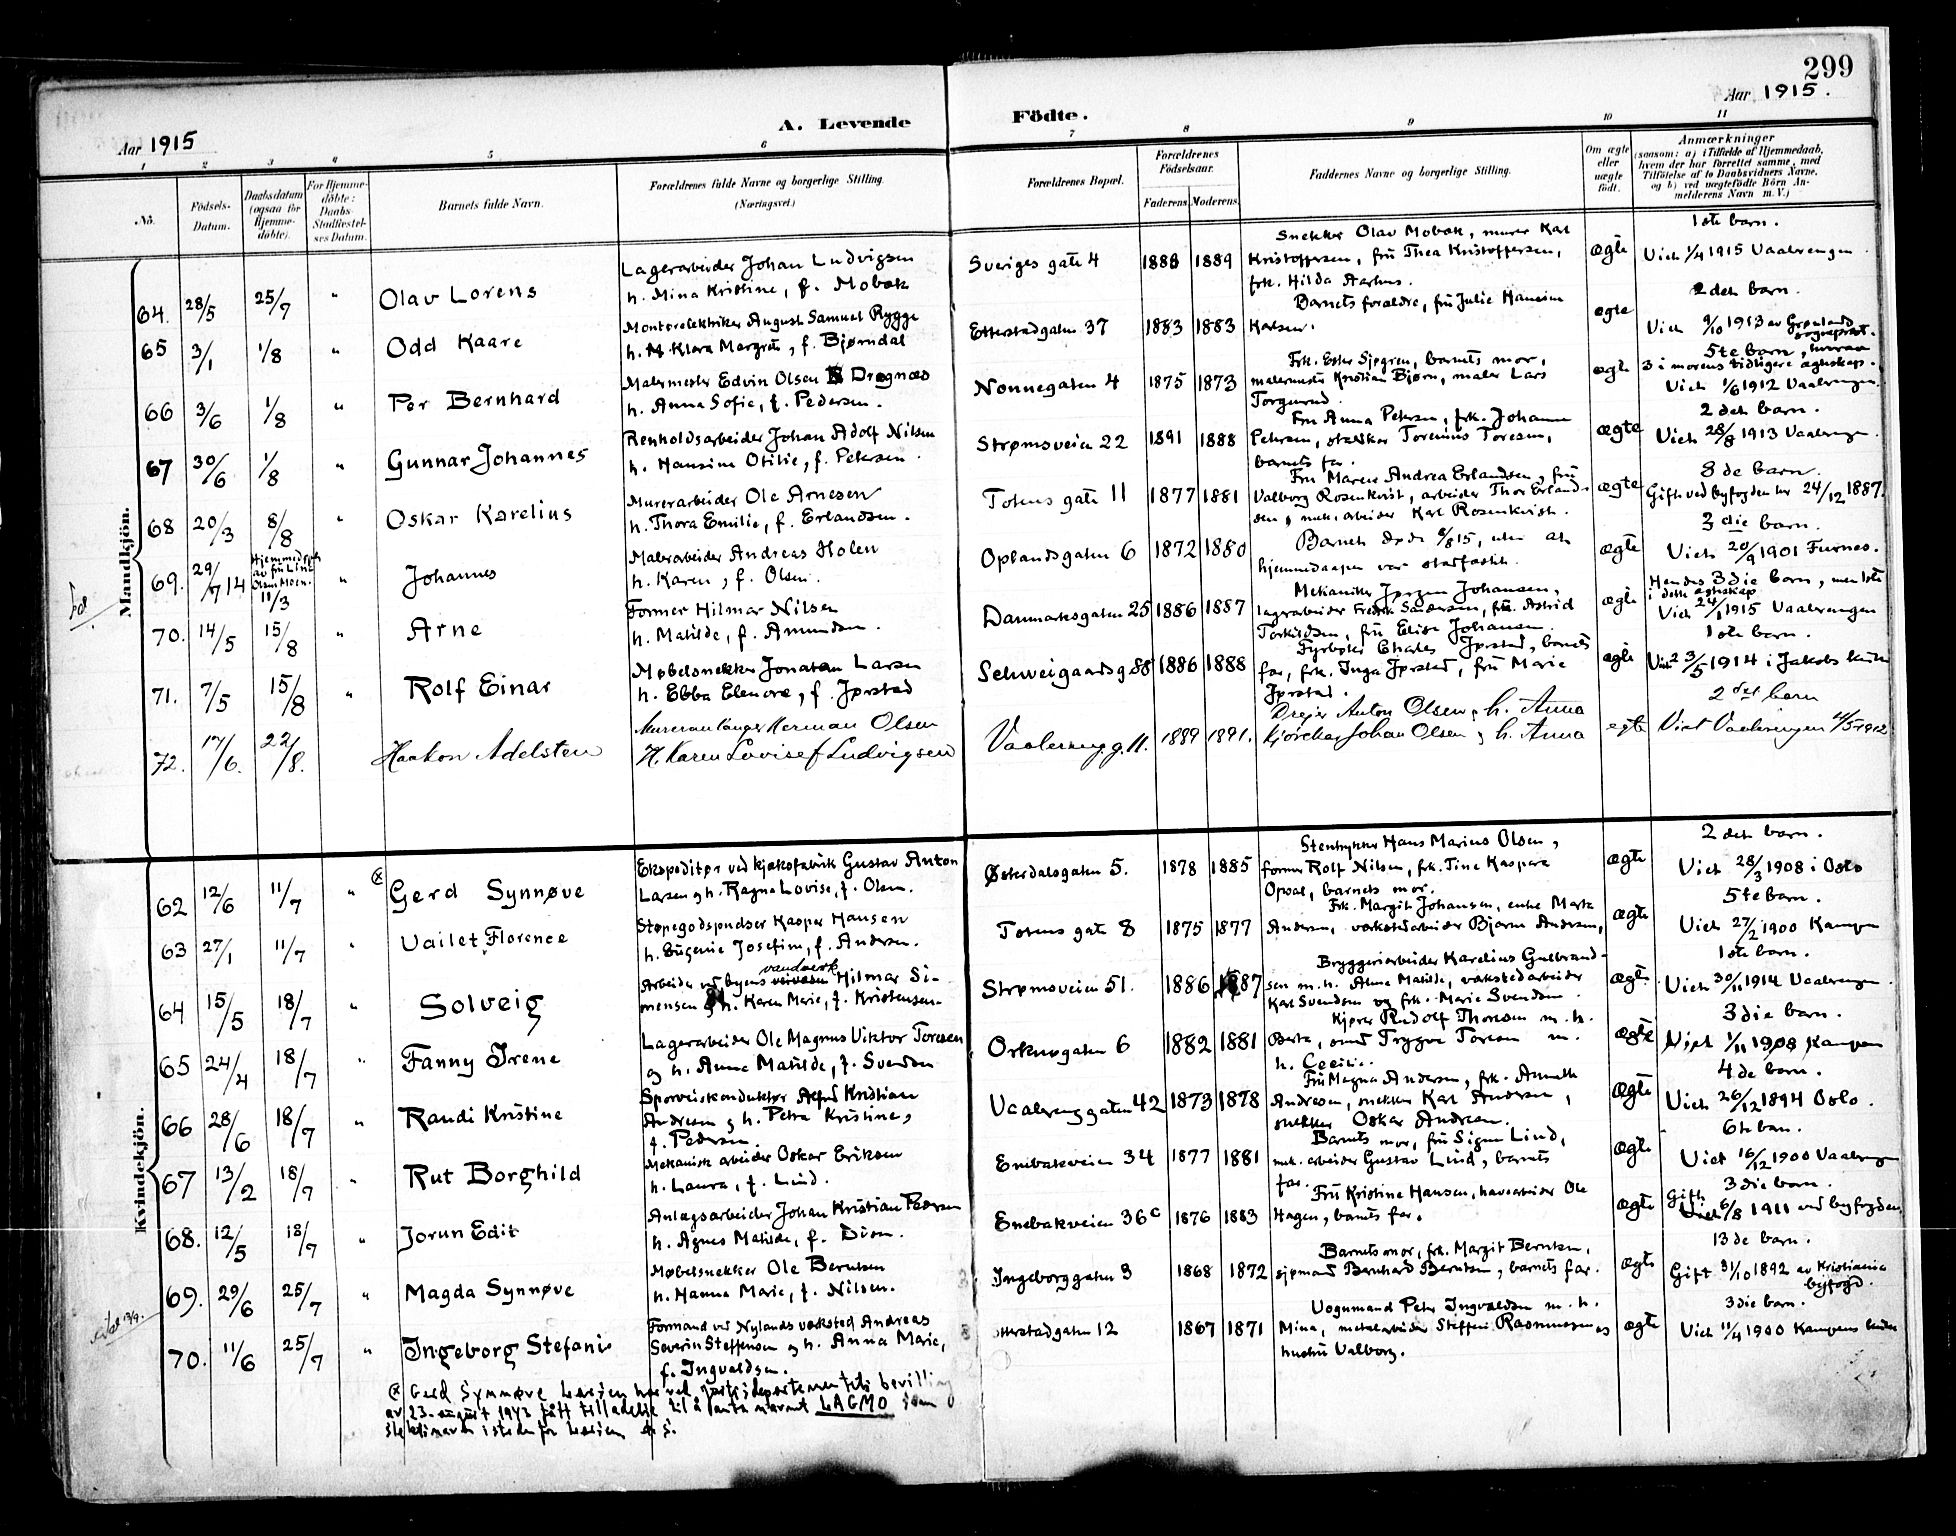 299
Aar 1915.
Aar 1915
A. Levende Födte.
1 2 3 4 5 6 7 8 9 10 11
No.
Födsels-Datum.
Daabsdatum (ogsaa for Hjemme-döbte).
For Hjemme-döbte: Daabs-Stadfæstel-ses Datum.
Barnets fulde Navn.
Forældrenes fulde Navne og borgerlige Stilling. (Næringsvei.)
Forældrenes Bopæl.
Forældrenes Födselsaar.
Faderens. Moderens.
Faddernes Navne og borgerlige Stilling.
Om ægte eller uægte födt.
Anmærkninger
(saasom: a) i Tilfælde af Hjemmedaab, hvem der har forrettet samme, med Tilföielse af to Daabsvidners Navne, og b) ved uægtefödte Börn An-melderens Navn m. V.)
Mandkjön.
64. 28/5 25/7 " Olav Lorens
Lagerarbeider Johan Ludvigsen
h. Mina Kristine, f. Mobæk
Sveriges gate 4 1888 1889
Snekker Olav Mobæk, murer Karl
Kristoffersen, fru Thea Kristoffersen,
frk. Hilda Aarhus.
ægte
1ste barn.
Viet 1/4 1915 Vaalerengen
65 3/1 1/8 " Odd Kaare
Montørelektriker August Samuel Rygge
h. Klara Margrete, f. Bjørndal
Etterstadgaten 37 1883 1883
Barnets forældre, fru Julie Hansine
Karlsen.
ægte
2det barn.
Viet 9/10 1913 av Grønlands
sogneprest.
66 3/6 1/8 " Per Bernhard
Malermester Edvin Olsen Drognæs
h. Anna Sofie, f. Pedersen.
Nonnegaten 4 1875 1873
Frk. Ester Sjøgren, barnets mor,
malermester Kristian Bjørn, maler Lars
Torgunrud.
ægte
5te barn, hvorav
3 i morens tidligere egteskap.
Viet 1/6 1912 Vaalerengen
67 30/6 1/8 " Gunnar Johannes
Renholdsarbeider Johan Adolf Nilsen
h. Hansine Otilie, f. Petersen.
Strømsveien 22 1891 1888
Fru Anna Petersen, frk. Johanne
Petersen, Torenius Toresen,
barnets far.
ægte
2det barn.
Viet 28/8 1913 Vaalerengen
68 20/3 8/8 " Oskar Karelius
Murerarbeider Ole Arnesen
h. Thora Emilie, f. Erlandsen.
Totens gate 11 1877 1881
Fru Maren Andrea Erlandsen, fru
Valborg Rosenkvist, arbeider Thor Erland-
sen, mek. arbeider Karl Rosenkvist.
ægte
8de barn.
Gift ved byfogden her 24/12 1887.
69. 29/7 14 Hjemmedøpt
av fru Lina
Olsen Moen.
11/3 " Johannes
Malerarbeider Andreas Holen
h. Karen, f. Olsen.
Oplandsgaten 6 1872 1880
Barnet døde 9/8 15, uten at
hjemmedaapen var stadfæstet.
ægte
3die barn.
Viet 20/9 1901 Furnes.
70. 14/5 15/8 " Arne
Former Hilmar Nilsen
h. Matilde, f. Amundsen.
Danmarksgaten 25 1886 1887
Mekaniker Jørgen Johansen,
lagerarbeider Fredrik Sandersen, frk. Astrid
Torkildsen, fru Elise Johansen.
ægte
Hendes 3die barn, men 1ste
i dette egteskap
Viet 24/1 1915 Vaalerengen
71. 7/5 15/8 " Rolf Einar
Møbelsnekker Jonatan Larsen
h. Ebba Elenore, f. Jørstad
Schweigaardsg. 88 1886 1888
Fyrbøter Charles Jørstad, barnets
far, frk. Inga Jørstad, fru Marie
Jørstad.
ægte
1ste barn.
Viet 23/5 1914 i Jakobs kirke
72. 17/6. 22/8. Haakon Adelsten
Herman Olsen
H. Karen Lovise f Ludvigsen
Vaalerengg. 11. 1889 1891.
Drejer Anton Olsen, h. Anna
Johan Olsen, h. Anna
egte
2det barn
Viet Vaalerengen 11/5 1912
Kvindekjön.
62 12/6 11/7 " ⊗ Gerd Synnøve
Ekspeditør ved kjæksfabrik Gustav Anton
Larsen og h. Ragna Lovise, f. Olsen.
Østerdalsgaten 5. 1878 1885
Stenhugger Hans Marius Olsen,
former Rolf Nilsen, frk. Tine Kaspara
Opsal, barnets mor.
ægte
2det barn.
Viet 28/3 1908 i Oslo
63 27/1 11/7 " Vailet Florence
Støpegodspudser Kasper Hansen
h. Eugenie Josefine, f. Andersen.
Totens gate 8 1875 1877
Frk. Margit Johansen, enke Marta
Andersen, verkstedarbeider Bjarne Andersen,
ægte
5te barn.
Viet 27/2 1900 Kampen
64 15/5 18/7 " Solveig
Arbeider ved byens vandverk Hilmar Si-
monsen og h. Karen Marie, f. Kristensen
Strømsveien 51. 1886 1887
Bryggeriarbeider Karelius Gulbrand-
sen m. h. Alma Matilde, verkstedarbeider
Karl Svendsen og frk. Marie Svendsen.
ægte
1ste barn.
Viet 30/11 1914 Vaalerengen.
65 24/4 18/7 " Fanny Irene
Lagerarbeider Ole Magnus Viktor Toresen
og h. Anna Matilde, f. Svendsen
Orknøgaten 6 1882 1881
Kjører Rudolf Thoresen m. h.
Berta, smed Trygve Toresen m.
h. Cecilie.
ægte
3die barn.
Viet 1/11 1908 Kampen
66 28/6 18/7 " Randi Kristine
Sporveiskonduktør Alfred Kristian
Andresen og h. Petra Kristine,
f. Pedersen
Vaalerenggaten 42 1873 1878
Fru Magna Andersen, frk. Anneth
Andresen, snekker Karl Andersen,
snekker Oskar Andresen.
ægte
4de barn.
Viet 26/12 1894 Oslo.
67 13/2 18/7 " Rut Borghild
Mekanisk arbeider Oskar Eriksen
h. Laura, f. Lind.
Enebakveien 34 1877 1881
Barnets mor, fru Signe Lind,
mek. arbeider Gustav Lind, barnets
far.
ægte
6te barn.
Viet 16/12 1900 Vaalerengen
68. 12/5 18/7 " Jorun Edit
Anlægsarbeider Johan Kristian Pedersen
h. Agnes Matilde, f. Dion.
Enebakveien 36c 1876 1883
Fru Kristine Hansen, havearbeider Ole
Hagen, barnets far.
ægte
3die barn.
Gift 6/8 1911 ved byfogden
69. 29/6 25/7 " Magda Synnøve
Møbelsnekker Ole Berntsen
h. Hanna Marie, f. Nilsen.
Ingeborggaten 3 1868 1872
Barnets mor, frk. Margit Berntsen,
sjømand Bernhard Berntsen, barnets far.
ægte
13de barn.
Gift 31/10 1892 av Kristiania
byfogd.
70. 11/6 25/7 " Ingeborg Stefanie
Formand ved Nylands verksted Andreas
Severin Steffensen og h. Anna Marie,
f. Ingvaldsen.
Etterstadgaten 12 1867 1871
Vognmand Peter Ingvaldsen m. h.
Mina, metalarbeider Steffen Rasmussen og
hustru Valborg.
ægte
3die barn.
Viet 11/4 1900 Kampens kirke
⊗ Gerd Synnøve Larsen har ved justisdepartementets bevilling
av 23. august 1943 fått tilladelse til å anta navnet LAGMO som
slektsnavn istedenfor Larsen